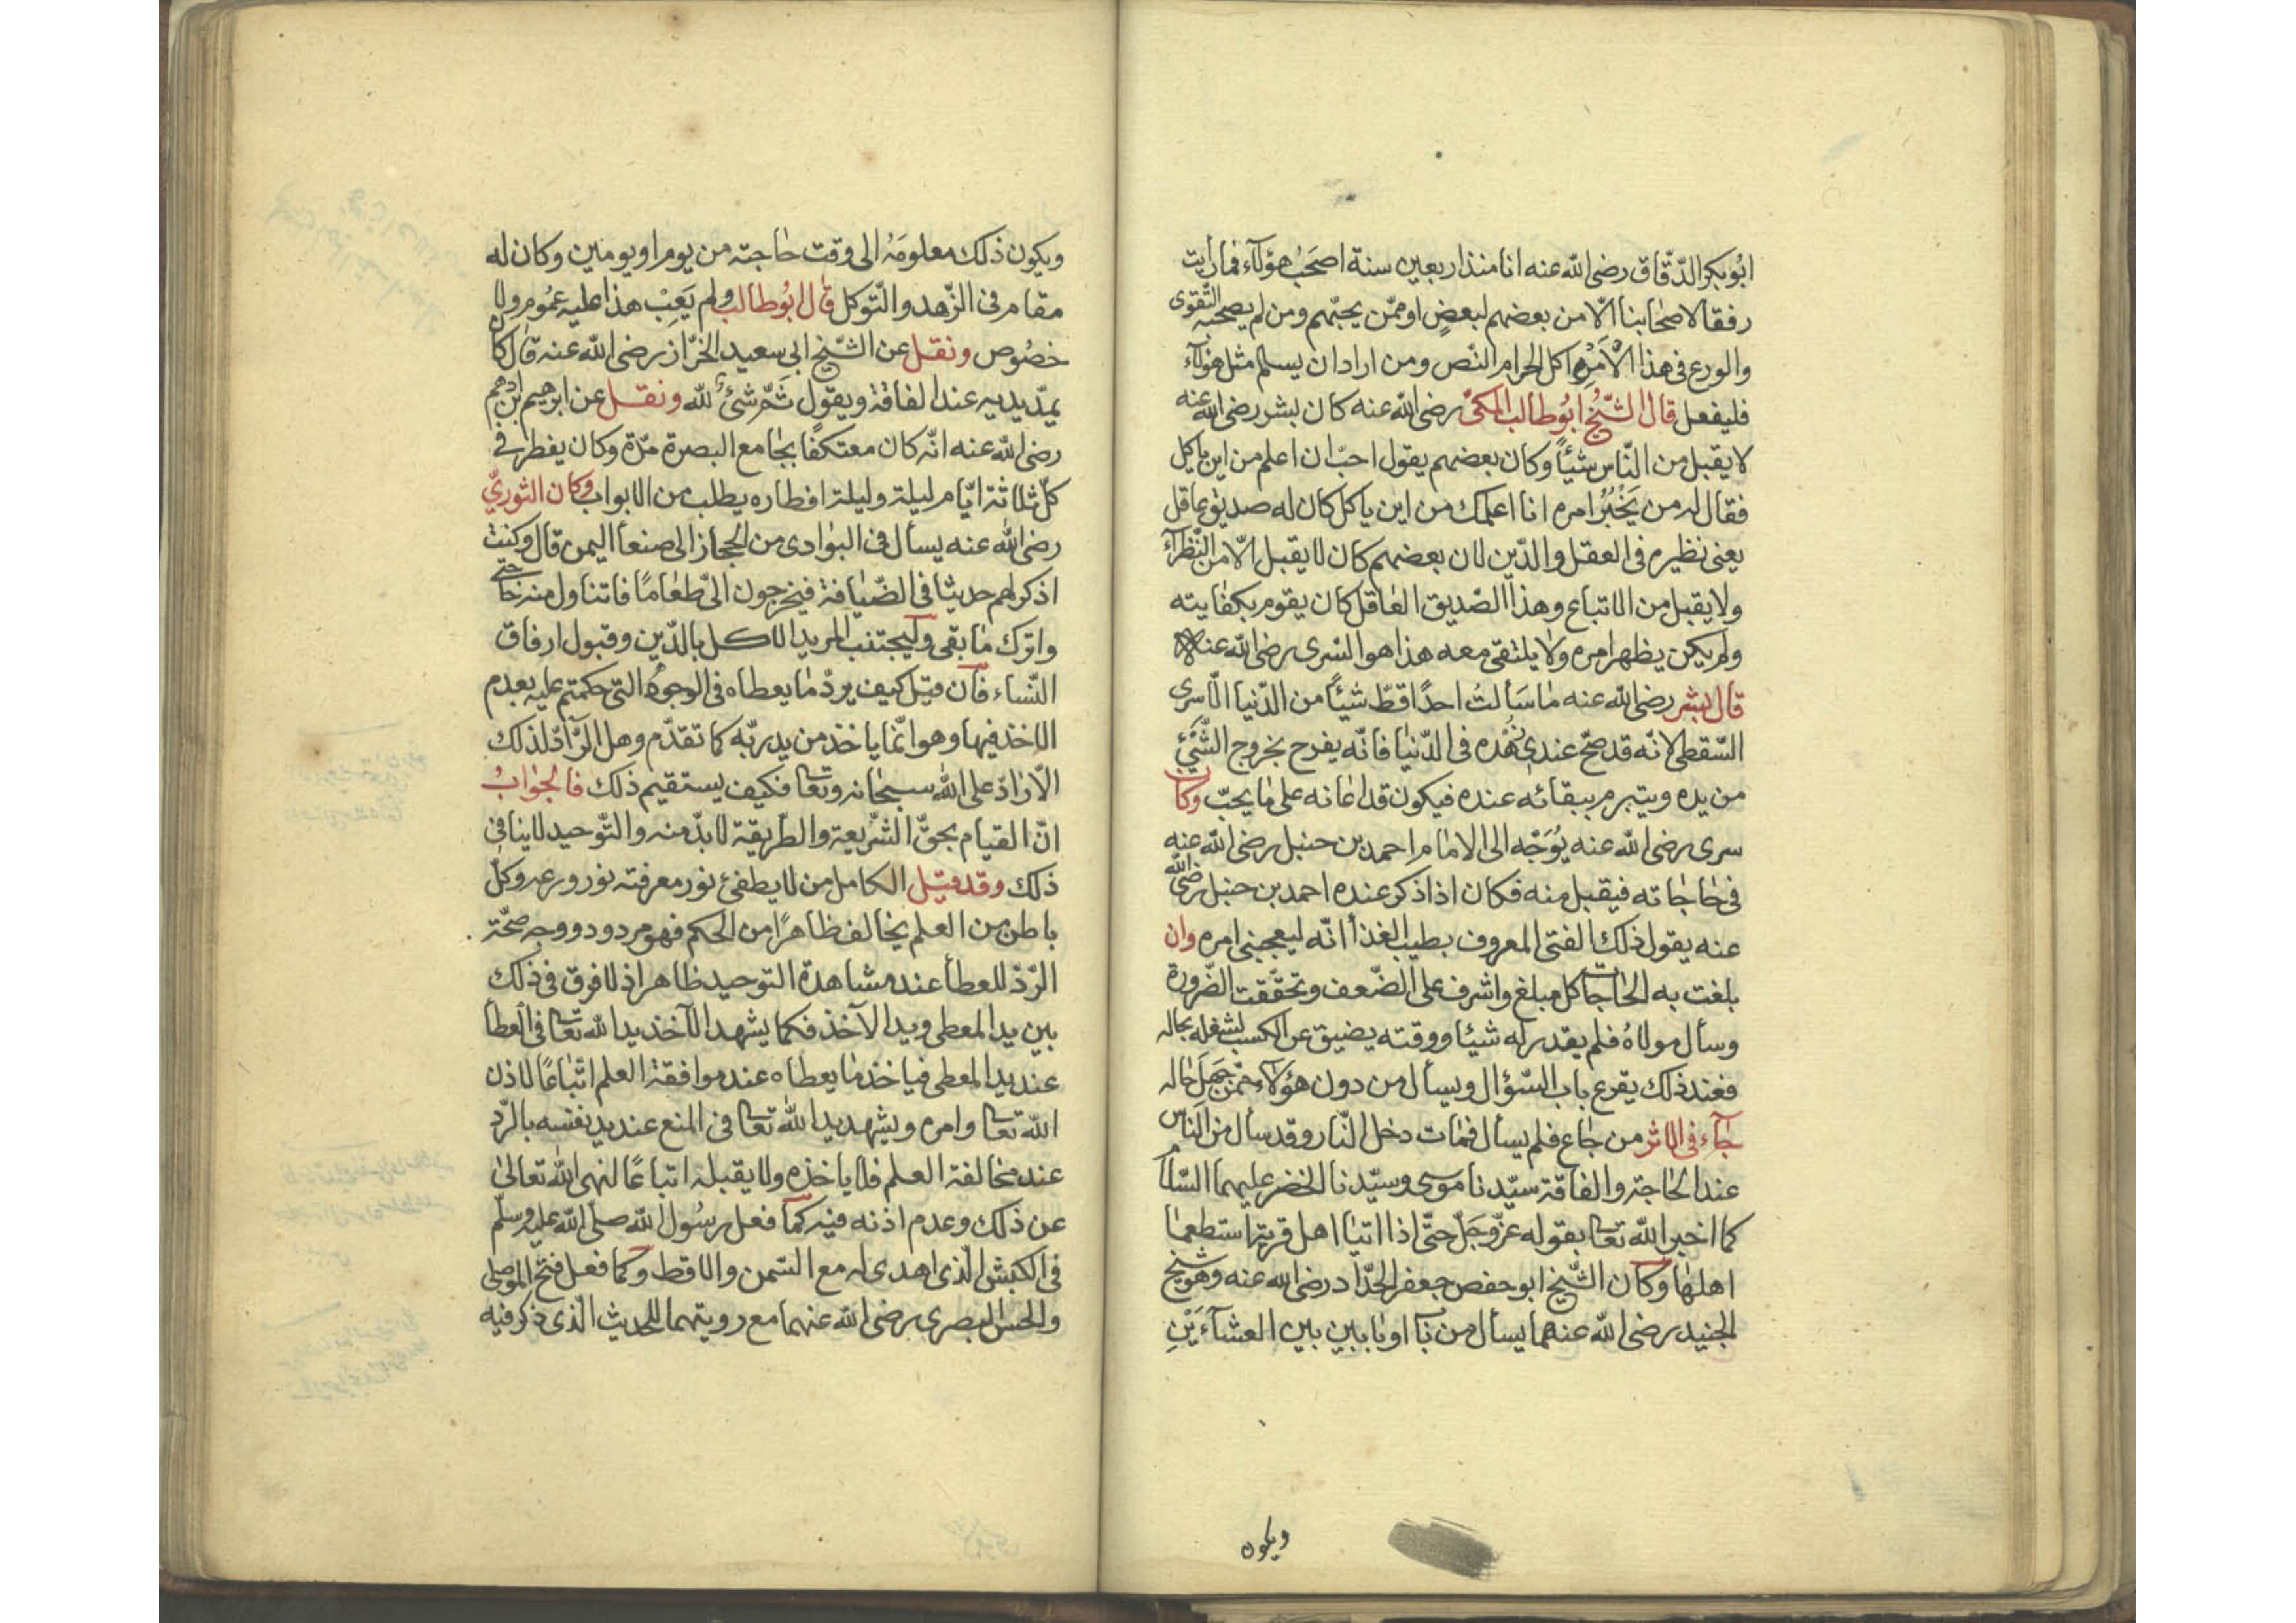 ابُو بكر الدّقّاق رضى الله عنه انا منذ اربعين سنة اصحَبُ هؤلآء فمارأيت
رفقا لاصحابنا الّا من بعضهم لبعضٍ او ممّن يحبّهم ومن لم يصحبه التّقوى
والورع فى هذا الأمر اكل الحرام النّص ومن اراد ان يسلم مثل هؤلآء
فليفعل قال الشّيخ ابُو طالب المكىّ رضى الله عنه كان بشر رضى الله عنه
لا يقبل من النّاس شيئاً وكان بعضهم يقول احبّ ان اعلم من اين ياكل
فقال له من يَخْبُرُ امره انا اعلمك من اين ياكل كان له صديق عاقل
يعنى نظيره فى العقل والدّين لان بعضهم كان لا يقبل الّا من النّظرآء
ولا يقبل من الاتباع وهذا الصّديق العاقل كان يقوم بكفايته
ولم يكن يظهر امره ولا يلتقى معه هذا هو السّرى رضى الله عنه
قال بشر رضى الله عنه ما سَألتُ احدًا قطّ شيئاً من الدّنيا الّا سرى
السّقطى لانّه قد صحّ عندى زُهْده فى الدّنيا فانّه يفرح بخروج الشّئ
من يده ويتبرم ببقائه عنده فيكون قد اعانه على ما يحبّ وكان
سرى رضى الله عنه يُوَجّه الى الامام احمد بن حنبل رضى الله عنه
فى حاجاته فيقبل منه فكان اذا ذكر عنده احمد بن حنبل رضى الله
عنه يقول ذلك الفتى المعروف بطيب الغذأ انّه ليعجبنى امره وان
بلغت به الحاجات كل مبلغ واشرف على الضّعف وتحقّقت الضّرورة
وسأل مولاهُ فلم يقدر له شيئا ووقته يضيق عن الكسب لشغله بحاله
فعند ذلك يقرع باب السّؤال ويسأل من دون هؤلآء ممّن جَهِلَ حاله
جآء فى الاثر من جاع فلم يسأل فمات دخل النّار وقد سأل من النّاس
عند الحاجة والفاقة سيّدنا موسى وسيّدنا الخضر عليهما السّلام
كما اخبر الله تعا بقوله عزّ وجَلّ حتّى اذا اتيا اهل قرية استطعما
اهلها وكان الشّيخ ابو حفص جعفر الحدّاد رضى الله عنه وهو شيخ
الجنيد رضى الله عنهما يسأل من باب او بابين بين العشآءَيْنِ
ويكون
ويكون ذلك معلومَهُ الى وقت حاجته من يوم او يومين وكان له
مقام فى الزّهد والتّوكل قال ابُو طالب ولم يَعِبْ هذا عليه عمُوم ولا
خصُوص ونقل عن الشّيخ ابى سعيد الخرّاز رضى الله عنه قال كان
يمدّ يديه عند الفاقة ويقول ثَمّ شئ لله ونقل عن ابرهيم بن ادهم
رضى الله عنه انّه كان معتكفًا بجامع البصرة مرّة وكان يفطر فى
كلّ ثلاثة ايّام ليلة وليلة افطاره يطلب من الابواب وكان الثورىّ
رضى الله عنه يسأل فى البوادى من الحجاز الى صنعأ اليمن قال وكنت
اذكر لهم حديثا فى الضّيافة فيخرجون الىّ طعامًا فاتناول منه حاجتى
واترك ما بقى وليجتنب المريد الاكل بالدّين وقبول ارفاق
النّساء فان قيل كيف يردّ ما يعطاه فى الوجوه التى حكمتم عليه بعدم
الاخذ فيها وهو انّما ياخذ من يد ربّه كما تقدّم وهل الرّآدّ لذلك
الّا رادّ على الله سبحانه وتعا فكيف يستقيم ذلك فالجواب
انّ القيام بحقّ الشّريعة والطّريقة لا بدّ منه والتّوحيد لا ينافى
ذلك وقد قيل الكامل من لا يطفئ نور معرفته نور ورعه وكلّ
باطن من العلم يخالف ظاهرًا من الحكم فهو مردود ووجه صحّة
الرّدّ للعطأ عند مشاهدة التوحيد ظاهر اذ لا فرق فى ذلك
بين يد المعطى ويد الآخذ فكما يشهد الآخذ يد الله تعا فى العطأ
عند يد المعطى فياخذ ما يعطاه عند موافقة العلم اتّباعًا لاذن
الله تعا وامره ويشهد يد الله تعا فى المنع عند يد نفسه بالرّد
عند مخالفة العلم فلا ياخذه ولا يقبله اتباعًا لنهى الله تعالى
عن ذلك وعدم اذنه فيه كما فعل رسُول الله صلى الله عليه وسلّم
فى الكبش الّذى اهدى له مع السّمن والاقط وكما فعل فتح الموصلى
والحسن البصرى رضى الله عنهما مع رويتهما للحديث الّذى ذكر فيه